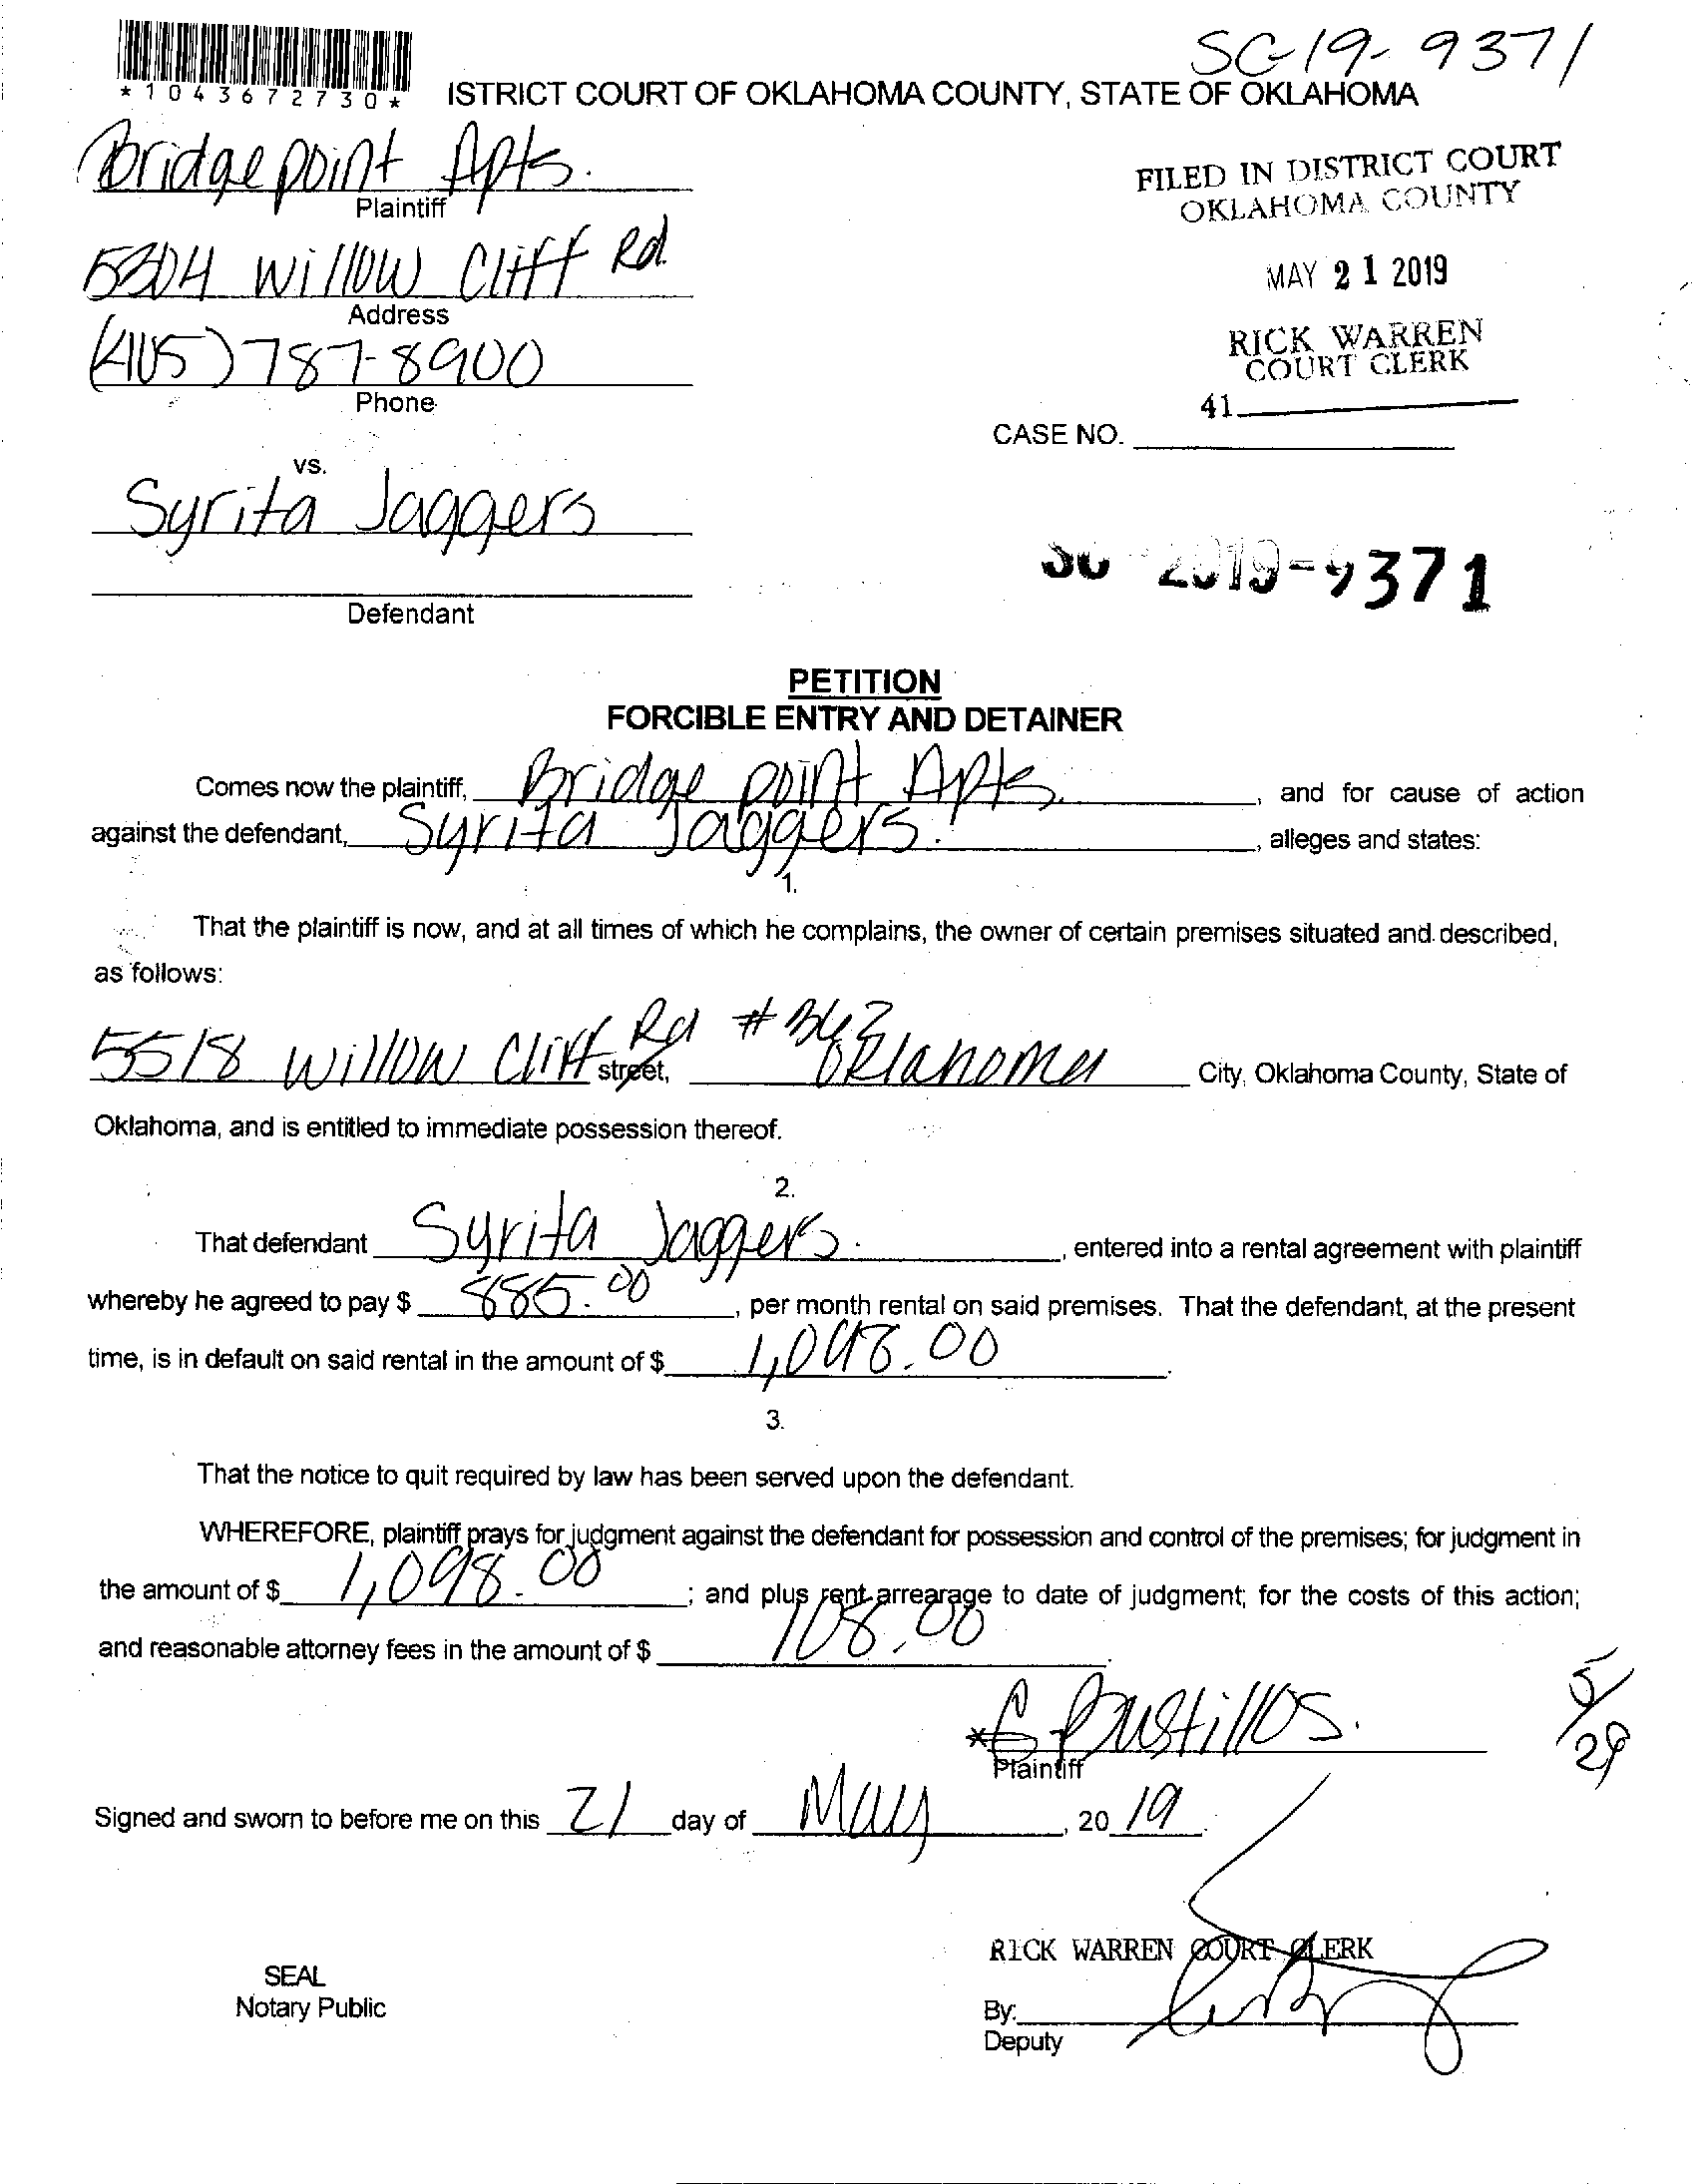 SC-19-9371
*1043672730*
ISTRICT COURT OF OKLAHOMA COUNTY, STATE OF OKLAHOMA
Bridgepoint Apts.
Plaintiff
5304 Willow Cliff Rd.
Address
(405) 787-8900
Phone
FILED IN DISTRICT COURT
OKLAHOMA COUNTY
MAY 21 2019
RICK WARREN
COURT CLERK
41
CASE NO.
vs.
Syrita Jaggers
Defendant
SC-2019-9371
PETITION
FORCIBLE ENTRY AND DETAINER
Comes now the plaintiff, Bridge point Apts. , and for cause of action
against the defendant, Syrita Jaggers. , alleges and states:
1.
That the plaintiff is now, and at all times of which he complains, the owner of certain premises situated and described,
as follows:
5518 Willow Cliff Rd # street, Oklahoma City, Oklahoma County, State of
Oklahoma, and is entitled to immediate possession thereof.
2.
That defendant Syrita Jaggers. , entered into a rental agreement with plaintiff
whereby he agreed to pay $ 885.00 , per month rental on said premises. That the defendant, at the present
time, is in default on said rental in the amount of $ 1,098.00 .
3.
That the notice to quit required by law has been served upon the defendant.
WHEREFORE, plaintiff prays for judgment against the defendant for possession and control of the premises; for judgment in
the amount of $ 1,098.00 ; and plus rent arrearage to date of judgment; for the costs of this action;
and reasonable attorney fees in the amount of $ 108.00 .
* G Bustillos.
Plaintiff
5/29
Signed and sworn to before me on this 21 day of May , 20 19 .
RICK WARREN COURT CLERK
SEAL
Notary Public
By:
Deputy